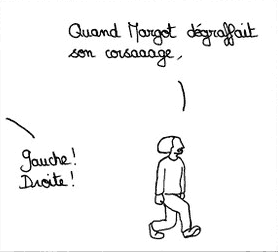 Quand Margot dégraffait
son corsaaage,
Gauche!
Droite!